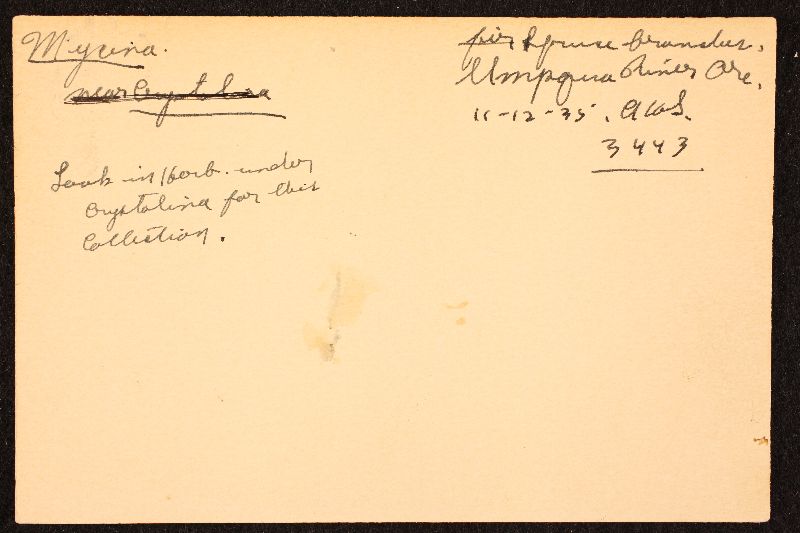 Mycena.
near Crystalina
Look in Herb. under
Crystalina for this
Collection.
fir Spruce branches.
Umpqua River Ore.
11-12-35. AHS.
3443